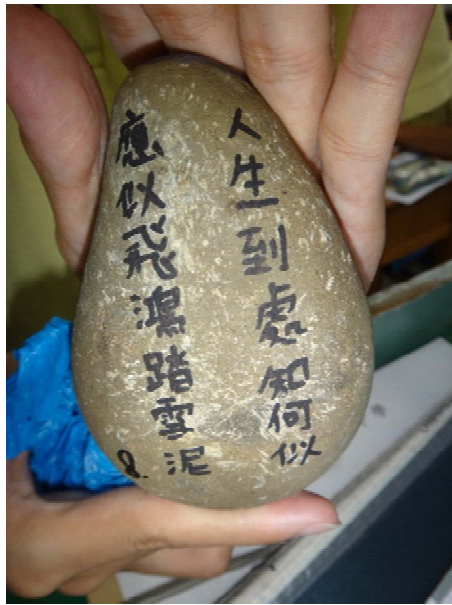 人生到處知何似
應似飛鴻踏雪泥
8.